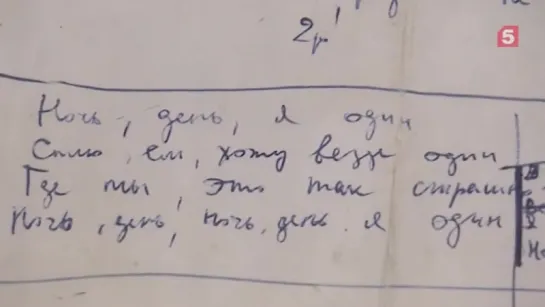 2р
5
Ночь, день, я один
Сплю, ем, хожу везде один
Где ты, это так страшно
Ночь, день, ночь, день. я один